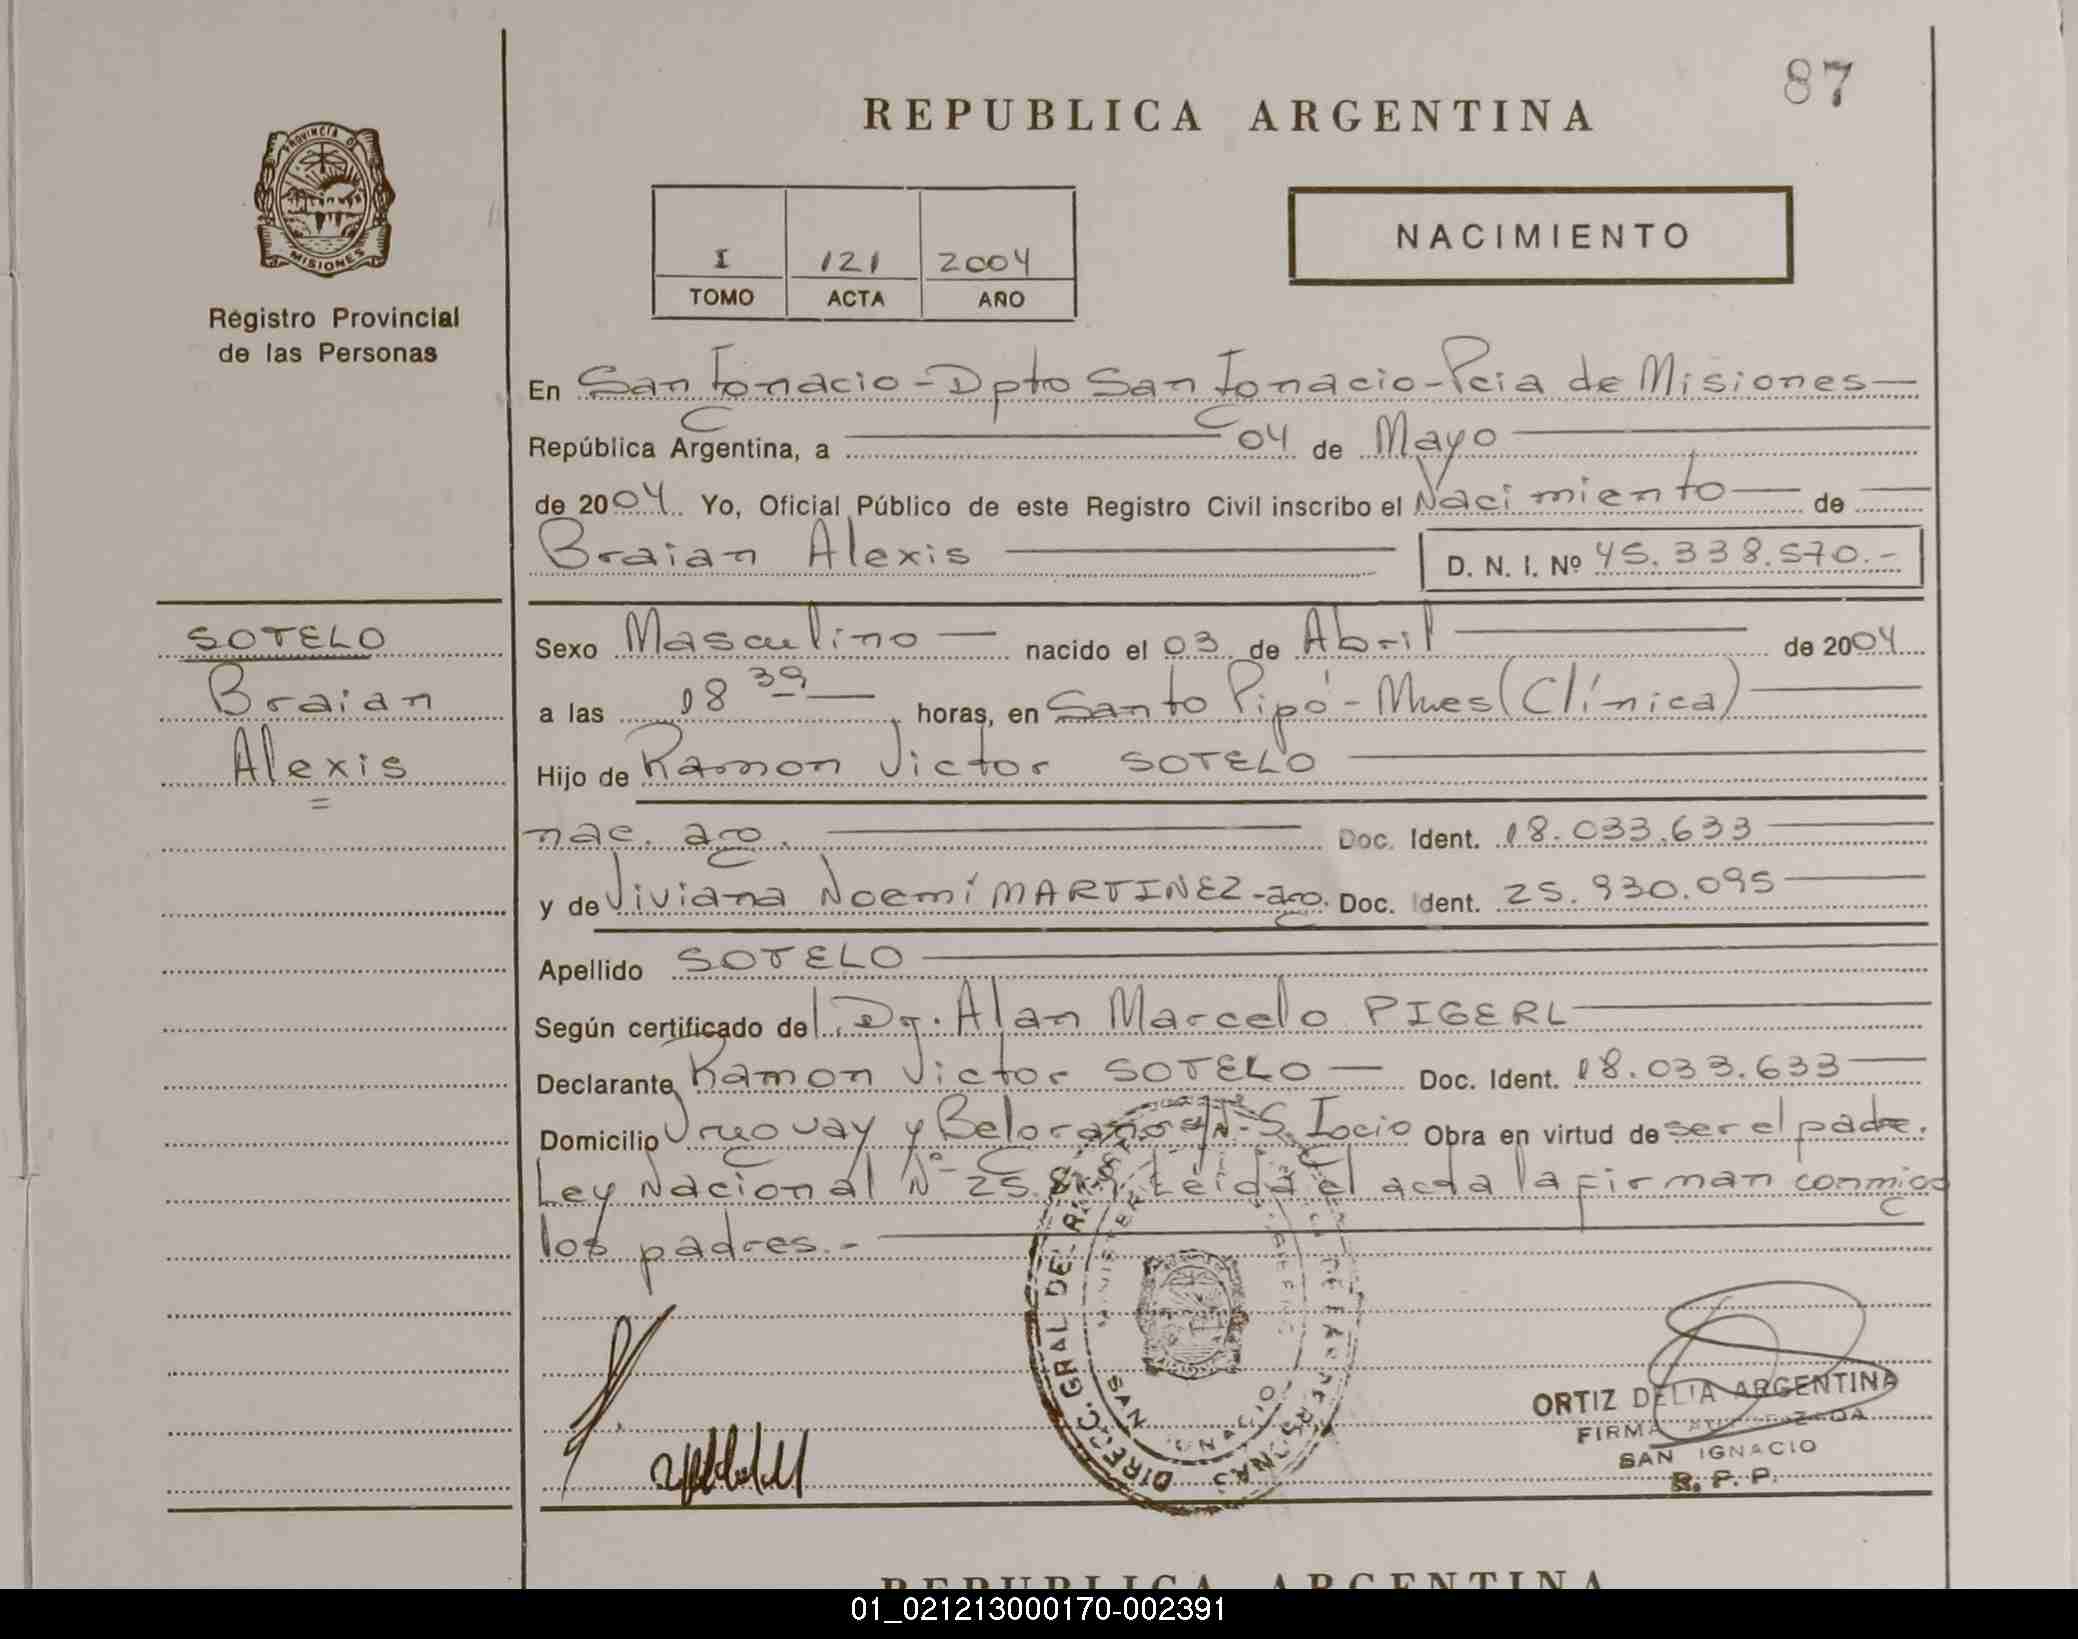 87
REPUBLICA ARGENTINA
PROVINCIA DE
MISIONES
Registro Provincial
de las Personas
I 121 2004
TOMO ACTA AÑO
NACIMIENTO
En San Ignacio - Dpto San Ignacio - Pcia de Misiones
República Argentina, a 04 de Mayo
de 2004. Yo, Oficial Público de este Registro Civil inscribo el Nacimiento de
Braian Alexis D. N. I. Nº 45.338.570.-
SOTELO
Braian
Alexis
Sexo Masculino nacido el 03 de Abril de 2004
a las 18 30 horas, en Santo Pipó - Mnes (Clínica)
Hijo de Ramon Victor SOTELO
nac. arg. Doc. Ident. 18.033.633
y de Viviana Noemí MARTINEZ - arg. Doc. Ident. 25.930.095
Apellido SOTELO
Según certificado del Dr. Alan Marcelo PIGERL
Declarante Ramon Victor SOTELO Doc. Ident. 18.033.633
Domicilio Uruguay y Belgrano S/N - S. Igcio Obra en virtud de ser el padre.
Ley Nacional Nº 25. Leída el acta la firman conmigo
los padres.-
DIRECC. GRAL DEL
SAN IGNACIO
ORTIZ DELIA ARGENTINA
FIRMA AUTORIZADA
SAN IGNACIO
R. P. P.
REPUBLICA ARGENTINA
01_021213000170-002391